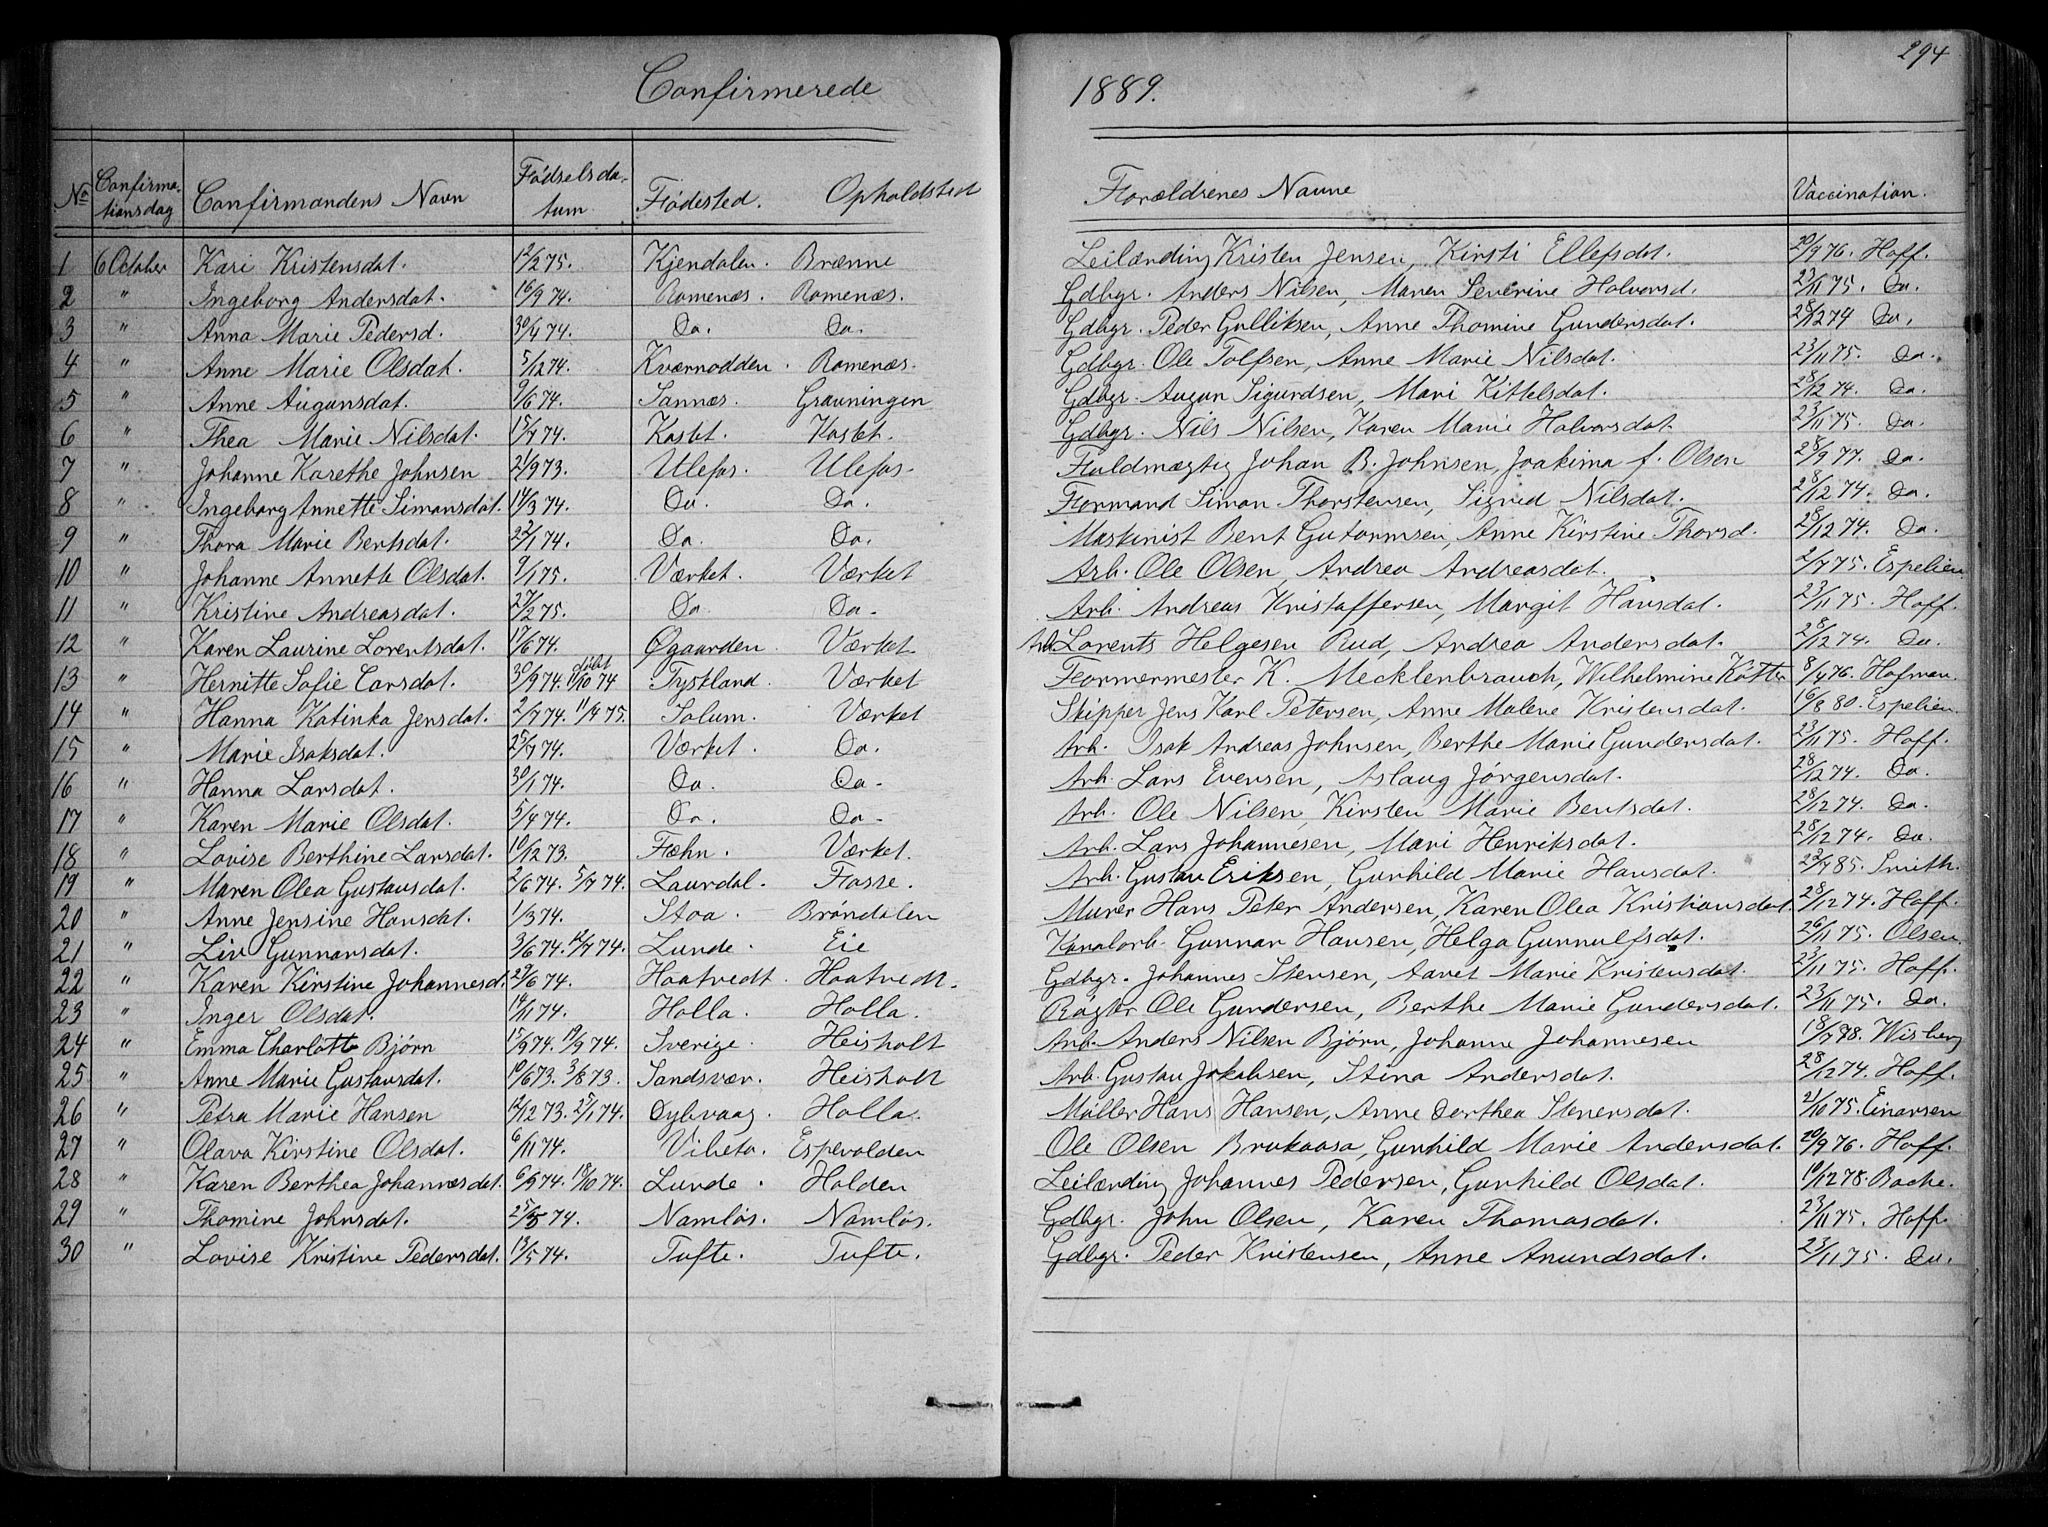 294
Confirmerede 1889.
No Confirma-tionsdag Confirmandens Navn Fødselsda-tum Fødested. Opholdsted Forældrenes Navne Vaccination.
1 6 October Kari Kristensdat. 12/2 75. Kjendalen. Brænne Leilænding Kristen Jensen, Kirsti Ellefsdat. 20/9 76. Hoff.
2 " Ingeborg Andersdat. 16/9 74. Romenæs. Romenæs. Gdbgr. Anders Nilsen, Maren Severine Halvorsd. 23/11 75. Do.
3 " Anna Marie Pedersd. 30/4 74. Do. Do. Gdbgr. Peder Gulliksen, Anne Thomine Gundersdat. 28/12 74 Do.
4 " Anne Marie Olsdat. 5/12 74. Kværnodden. Romenæs. Gdbgr. Ole Tolfsen, Anne Marie Nilsdat. 23/11 75. Do.
5 " Anne Augunsdat. 9/6 74. Sannæs. Grauningen Gdbgr. Augun Sigurdsen, Mari Kittelsdat. 28/12 74. Do.
6 " Thea Marie Nilsdat. 15/7 74. Kastet. Kastet. Gdbgr. Nils Nilsen, Karen Marie Halvorsdat. 23/11 75. Do.
7 " Johanne Karethe Johnsen 21/9 73. Ulefos. Ulefos. Fuldmægtig Johan B. Johnsen, Joakima f. Olsen 28/9 77. Do.
8 " Ingeborg Annette Simonsdat. 14/3 74. Do. Do. Formand Simon Thorstensen, Sigrid Nilsdat. 28/12 74. Do.
9 " Thora Marie Bentsdat. 23/1 74. Do. Do. Maskinist Bent Gutormsen, Anne Kirstine Thorsd. 28/12 74. Do.
10 " Johanne Annette Olsdat. 9/1 75. Værket. Værket Arb. Ole Olsen, Andrea Andreasdat. 2/7 75. Espelien
11 " Kristine Andreasdat. 27/2 75. Do Do. Arb. Andreas Kristoffersen, Margit Hansdat. 23/11 75. Hoff.
12 " Karen Laurine Lorentsdat. 17/6 74. Øgaarden. Værket. Arb. Lorents Helgesen Rud, Andrea Andersdat. 28/12 74. Do.
13 " Hernitte Sofie Carsdat. 30/9 74. 11/10 74 Tyskland. Værket Formermester K. Mecklenbrauch, Wilhelmine Kötter 8/4 76. Hofman.
14 " Hanna Katinka Jensdat. 2/7 74. 11/4 75. Solum. Værket Skipper Jens Karl Petersen, Anne Malene Kristensdat. 16/8 80. Espelien.
15 " Marie Isaksdat. 25/7 74. Værket. Do. Arb. Isak Andreas Johnsen, Berthe Marie Gundersdat. 23/11 75. Hoff.
16 " Hanna Larsdat. 30/1 74. Do. Do. Arb. Lars Evensen, Aslaug Jørgensdat. 28/12 74. Do.
17 " Karen Marie Olsdat. 5/4 74. Do. Do. Arb. Ole Nilsen, Kirsten Marie Bentsdat. 28/12 74. Do.
18 " Lovise Berthine Larsdat. 10/12 73. Fæhn. Værket. Arb. Lars Johannesen, Mari Henriksdat. 28/12 74. Do.
19 " Maren Olea Gustavsdat. 2/6 74. 5/7 74. Laurdal. Fosse. Arb. Gustav Eriksen, Gunhild Marie Hansdat. 22/7 85. Smith.
20 " Anne Jensine Hansdat. 1/3 74. Stoa. Brøndalen Murer Hans Peter Andersen, Karen Olea Kristiansdat. 28/12 74. Hoff.
21 " Liv Gunnarsdat. 3/6 74. 12/7 74. Lunde. Eie Kanalarb. Gunnar Hansen, Helga Gunnulfsdat. 26/11 75. Olsen.
22 " Karen Kirstine Johannesd. 29/6 74. Hoatvedt. Hoatvedt. Gdbgr. Johannes Stensen, Aaret Marie Kristensdat. 23/11 75. Hoff.
23 " Inger Olsdat. 19/11 74. Holla. Holla. Røgter Ole Gundersen, Berthe Marie Gundersdat. 23/11 75. Do.
24 " Emma Charlotte Bjørn 15/9 74. 19/9 74. Sverige. Heisholt Arb. Anders Nilsen Bjørn, Johanne Johannesen 18/7 78. Wisberg
25 " Anne Marie Gustavsdat. 10/6 73. 3/8 73. Sandsvær. Heisholt Arb. Gustav Jakobsen, Stina Andersdat. 28/12 74. Hoff.
26 " Petra Marie Hansen 12/12 73. 25/1 74. Dybvaag. Holla. Møller Hans Hansen, Anne Dorthea Stenersdat. 21/10 75. Einarsen
27 " Olava Kirstine Olsdat. 6/11 74. Vibeto. Espevolden Ole Olsen Brukaasa, Gunhild Marie Andersdat. 20/9 76. Hoff.
28 " Karen Berthea Johannesdat. 6/9 74. 18/10 74. Lunde. Holden Leilænding Johannes Pedersen, Gunhild Olsdat. 10/12 78. Bache.
29 " Thomine Johnsdat. 25/5 74. Namløs. Namløs. Gdbgr. John Olsen, Karen Thomasdat. 23/11 75. Hoff.
30 " Lovise Kristine Pedersdat. 13/5 74. Tufte. Tufte. Gdbgr. Peder Kristensen, Anne Anundsdat. 23/11 75. Do.